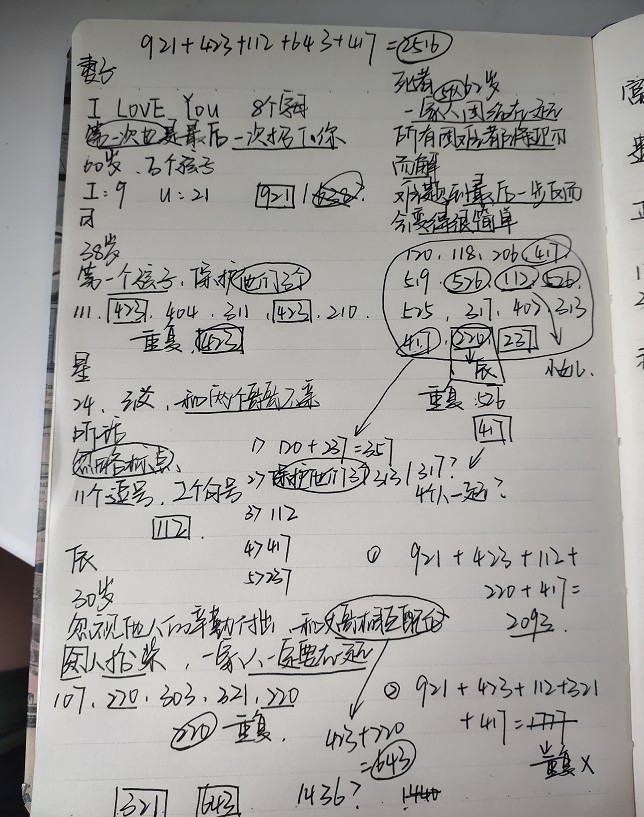 921+423+112+643+417=2516
I LOVE YOU 8个字母
第一次也是最后一次招了你
60岁、百个孩子
I:9 U:21 921
月
38岁
第一个孩子,保护他们3个
111. 423. 404. 311. 423. 210.
重复 423
星
24. 和两个
听话
忽略标点
11个逗号、2个句号
112
辰
30岁
忽视他人的辛勤付出
一家人一定要在一起
107. 220. 303. 321. 220
220 重复.
321 643
死者 62岁
一家人团结在一起
所有困难都将迎刃
而解
难题到最后一步反而
会变得很简单
120. 118. 206. 417.
519. 526. 112. 526.
525. 317. 402. 313
417. 220. 237
辰
重复:526
417
1> 120+237=357
2> 保护他们3个 313/317?
4个人一起?
3> 112
4> 417
5> 237
① 921+423+112+
220+417=
2093
② 921+423+112+321
+417=
重复 X
423+220
=643
1436? 1440